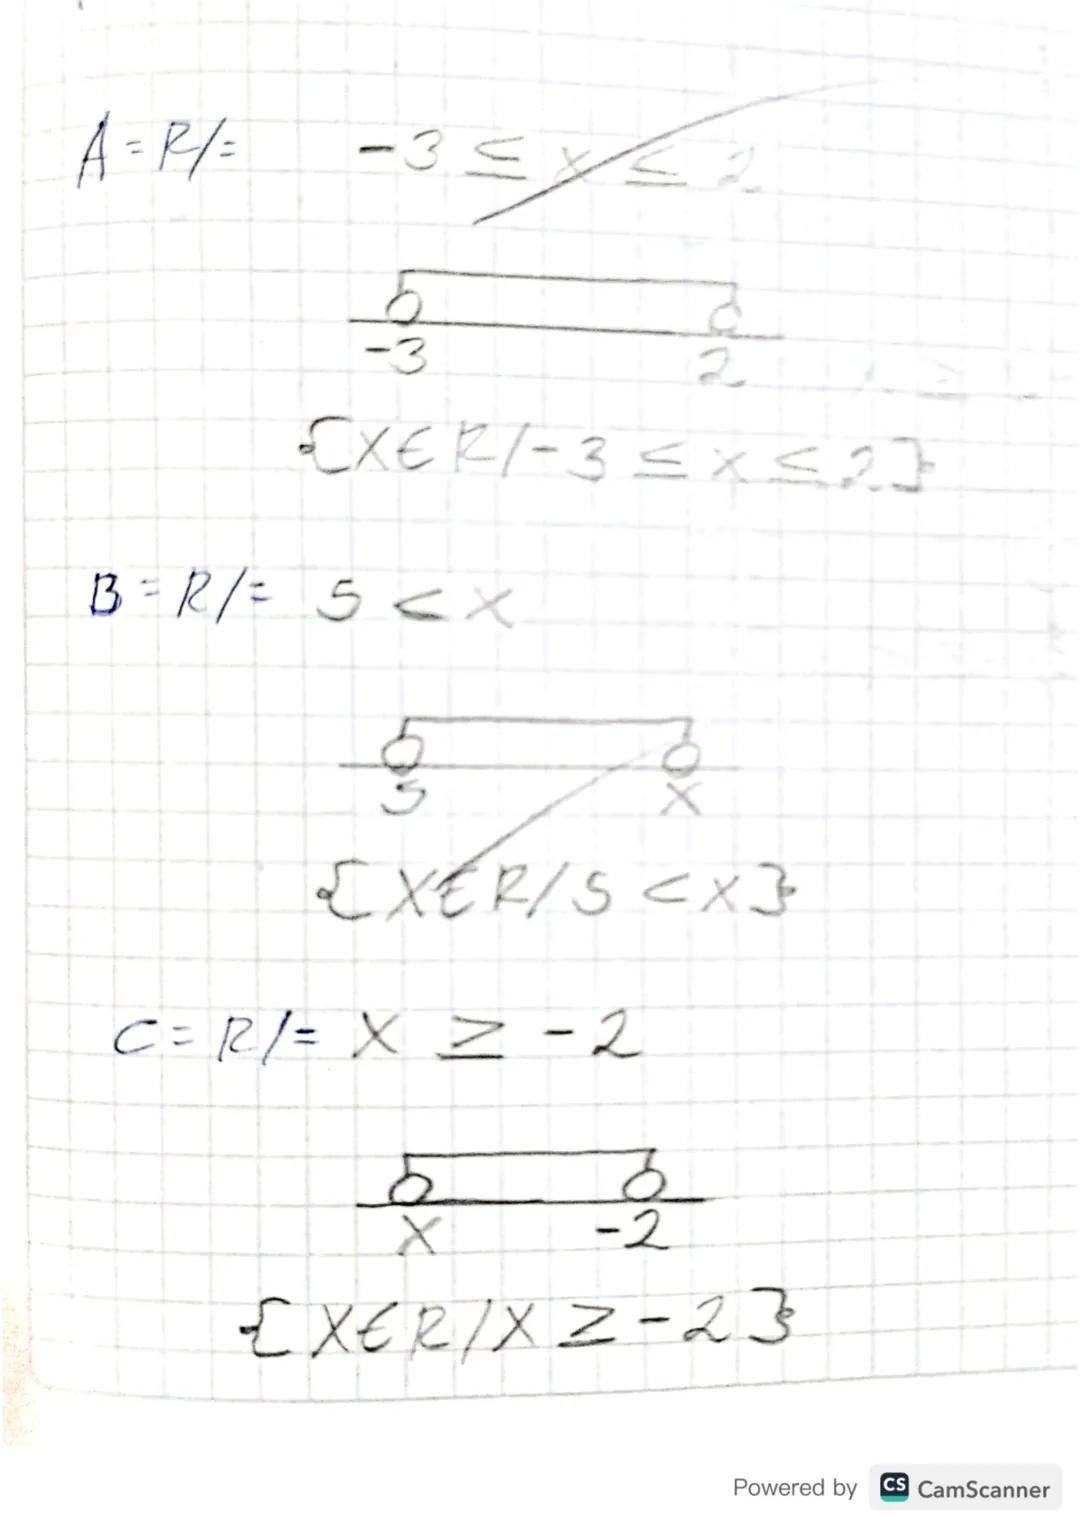 A = R/= -3 ≤ x ≤ 2
-3 2
{X∈R/-3 ≤ x ≤ 2}
B = R/= 5 < x
5 x
{X∈R/5 < x}
C = R/= X ≥ -2
X -2
{X∈R/X ≥ -2}
Powered by CS CamScanner